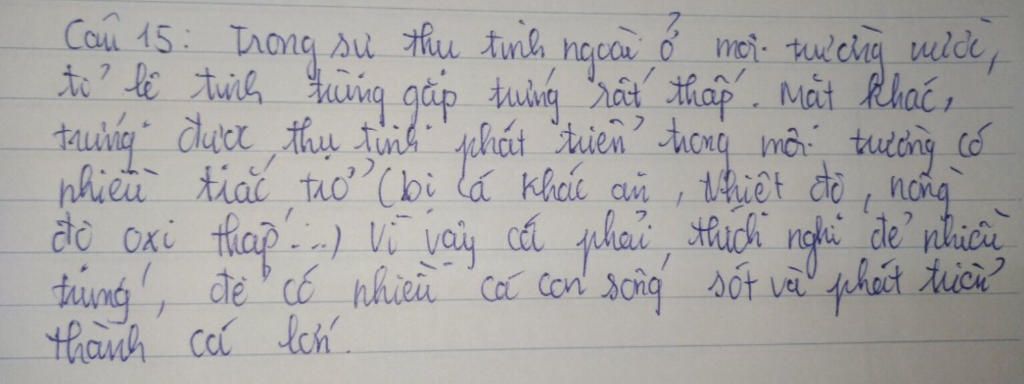 Câu 15: Trong sự thụ tinh ngoài ở môi trường nước,
tỉ lệ tinh trùng gặp trứng rất thấp. Mặt khác,
trứng được thụ tinh phát triển trong môi trường có
nhiều trắc trở (bị cá khác ăn, nhiệt độ, nồng
độ oxi thấp...) Vì vậy cá phải thích nghi đẻ nhiều
trứng, để có nhiều cá con sống sót và phát triển
thành cá lớn.